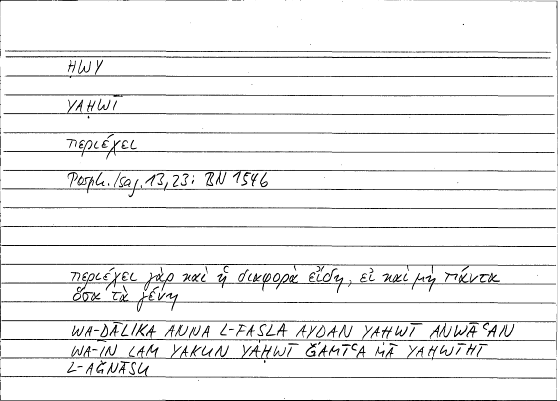 ḤWY
YAḤWĪ
περιέχει
Porph. Isag. 13, 23: BN 1546
περιέχει γὰρ καὶ ἡ διαφορὰ εἴδη, εἰ καὶ μὴ πάντα
ὅσα τὰ γένη
WA-ḎĀLIKA ANNA L-FAṢLA AYḌAN YAḤWĪ ANWĀʿAN
WA-IN LAM YAKUN YAḤWĪ ǦAMĪʿA MĀ YAḤWĪHI
L-AǦNĀSU